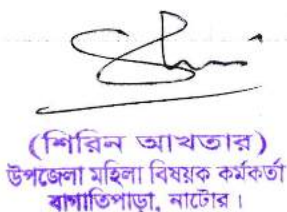 (শিরিন আখতার)
উপজেলা মহিলা বিষয়ক কর্মকর্তা
বাগাতিপাড়া, নাটোর।